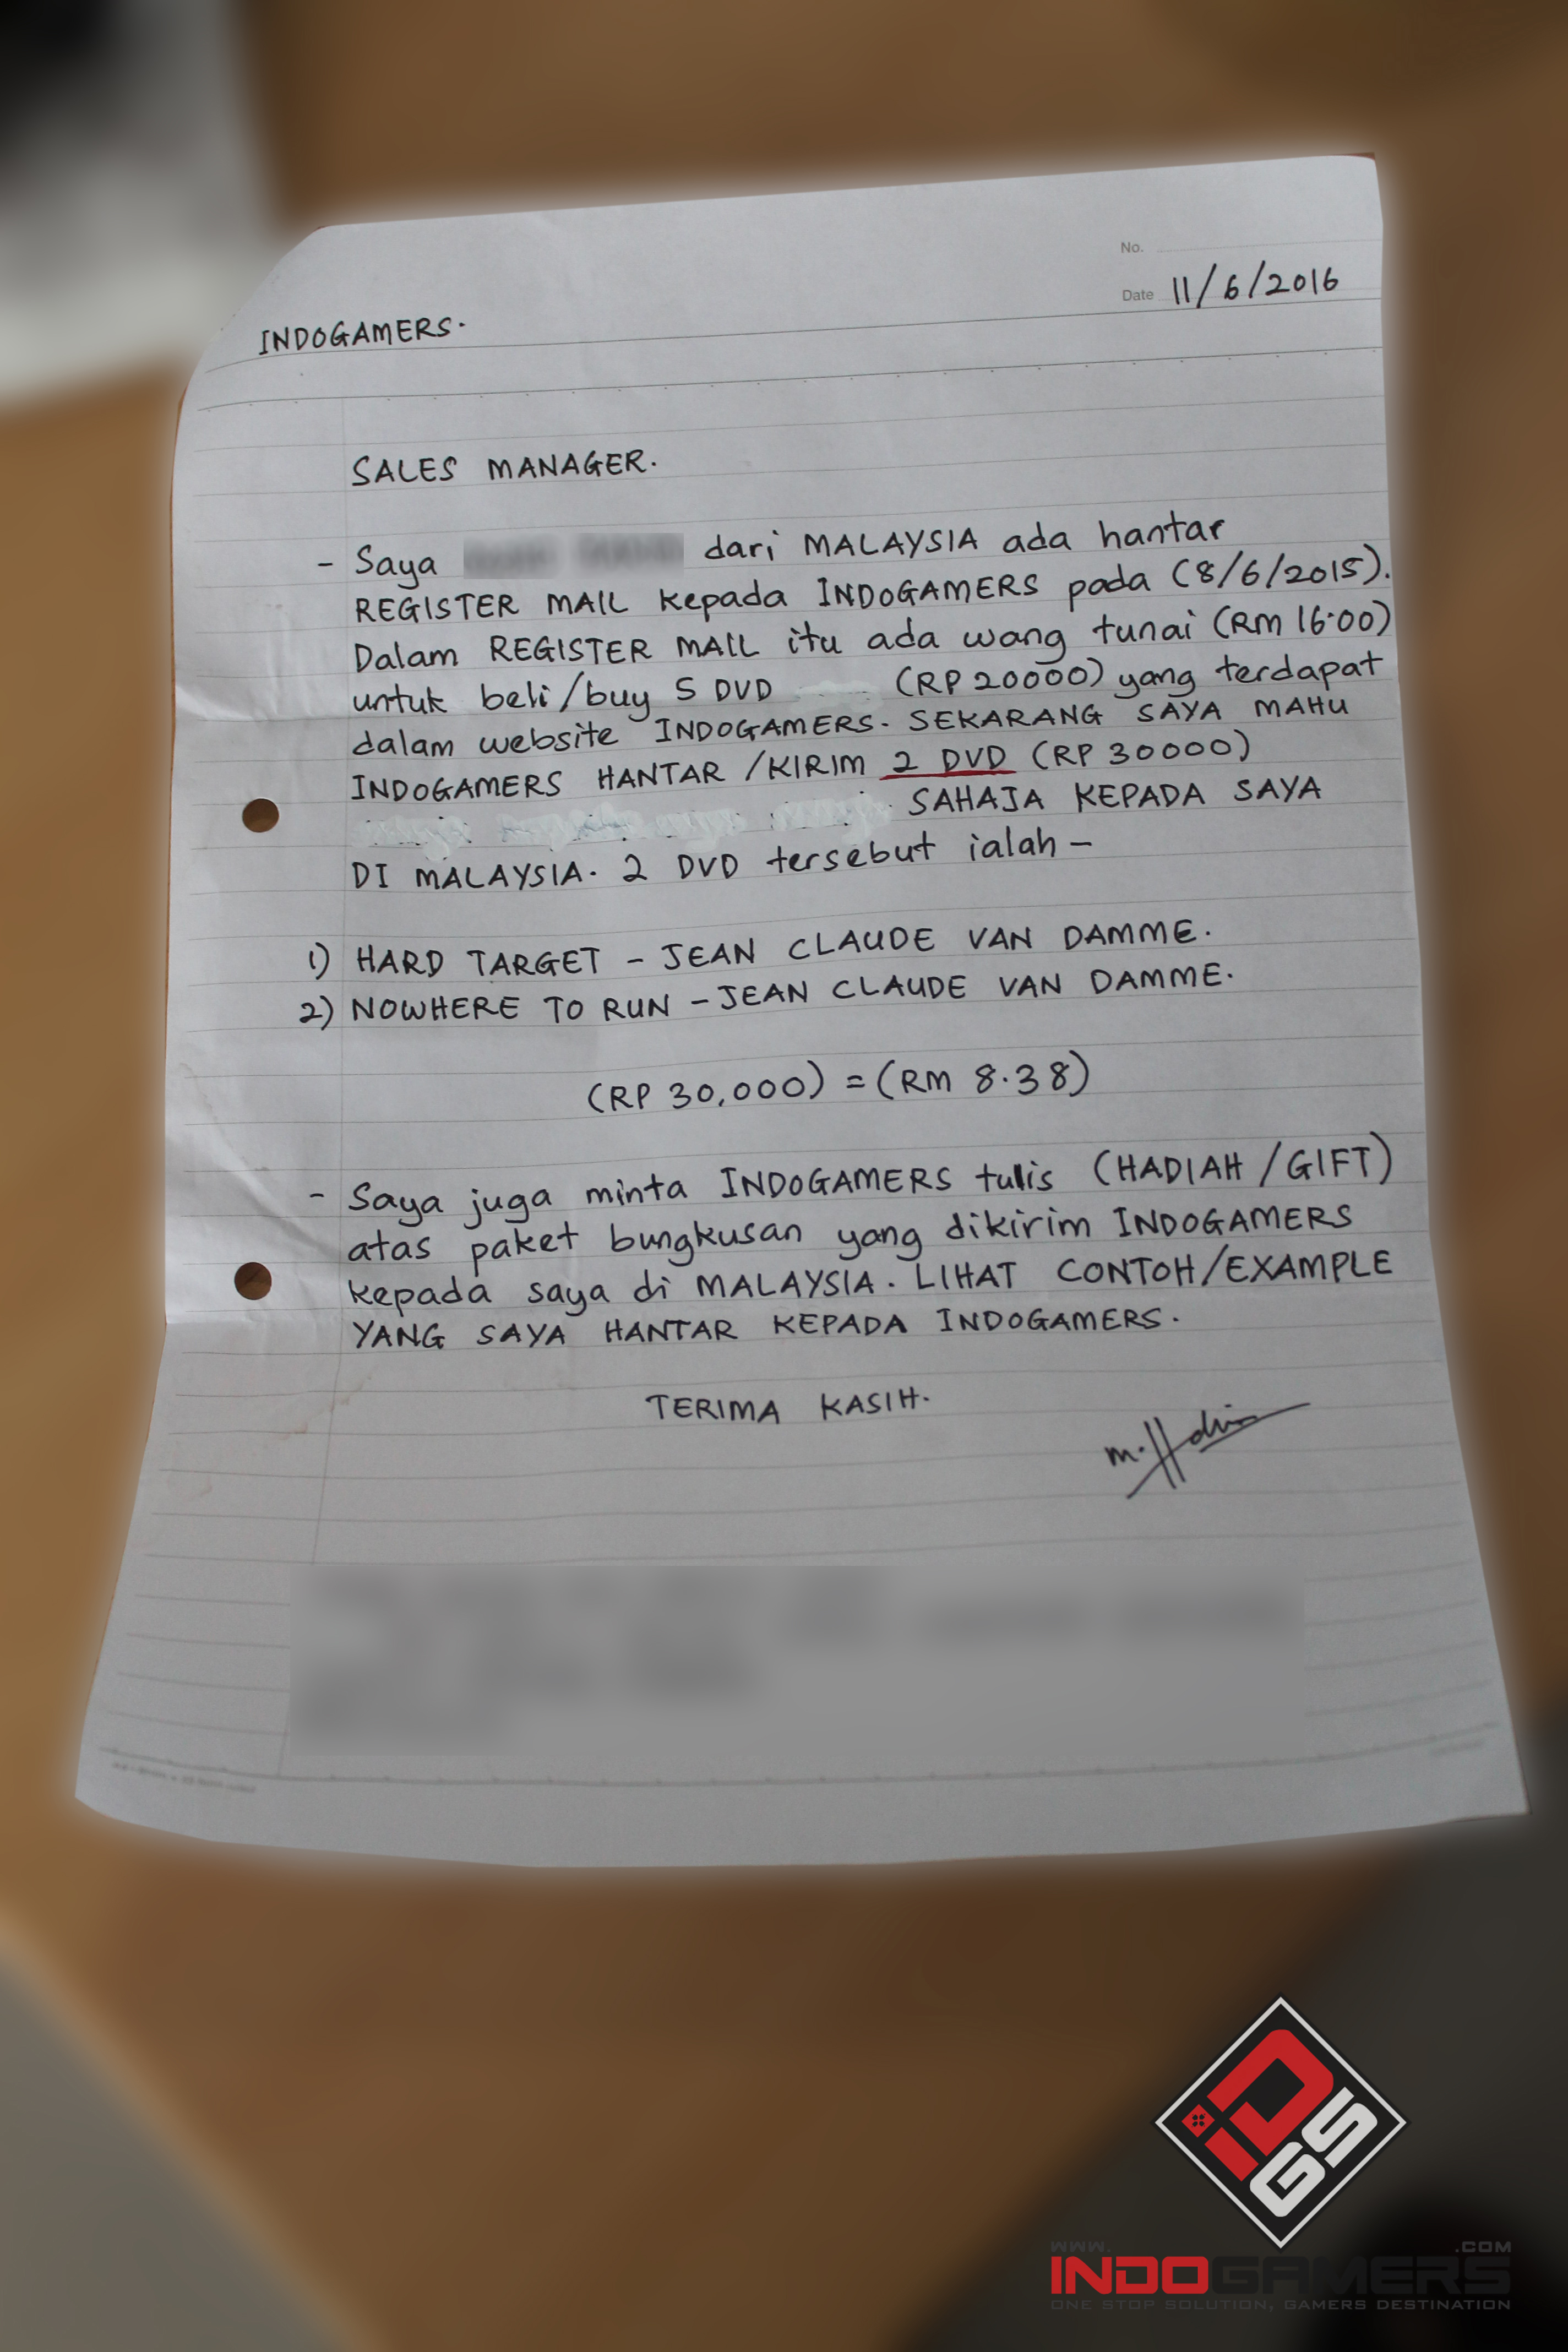 No.
Date 11/6/2016
INDOGAMERS.
SALES MANAGER.
- Saya dari MALAYSIA ada hantar
REGISTER MAIL kepada INDOGAMERS pada (8/6/2015).
Dalam REGISTER MAIL itu ada wang tunai (RM 16.00)
untuk beli/buy 5 DVD (RP 20000) yang terdapat
dalam website INDOGAMERS. SEKARANG SAYA MAHU
INDOGAMERS HANTAR /KIRIM 2 DVD (RP 30000)
SAHAJA KEPADA SAYA
DI MALAYSIA. 2 DVD tersebut ialah -
1) HARD TARGET - JEAN CLAUDE VAN DAMME.
2) NOWHERE TO RUN - JEAN CLAUDE VAN DAMME.
(RP 30,000) = (RM 8.38)
- Saya juga minta INDOGAMERS tulis (HADIAH /GIFT)
atas paket bungkusan yang dikirim INDOGAMERS
kepada saya di MALAYSIA. LIHAT CONTOH/EXAMPLE
YANG SAYA HANTAR KEPADA INDOGAMERS.
TERIMA KASIH.
iDGS
WWW.
.COM
INDOGAMERS
ONE STOP SOLUTION, GAMERS DESTINATION